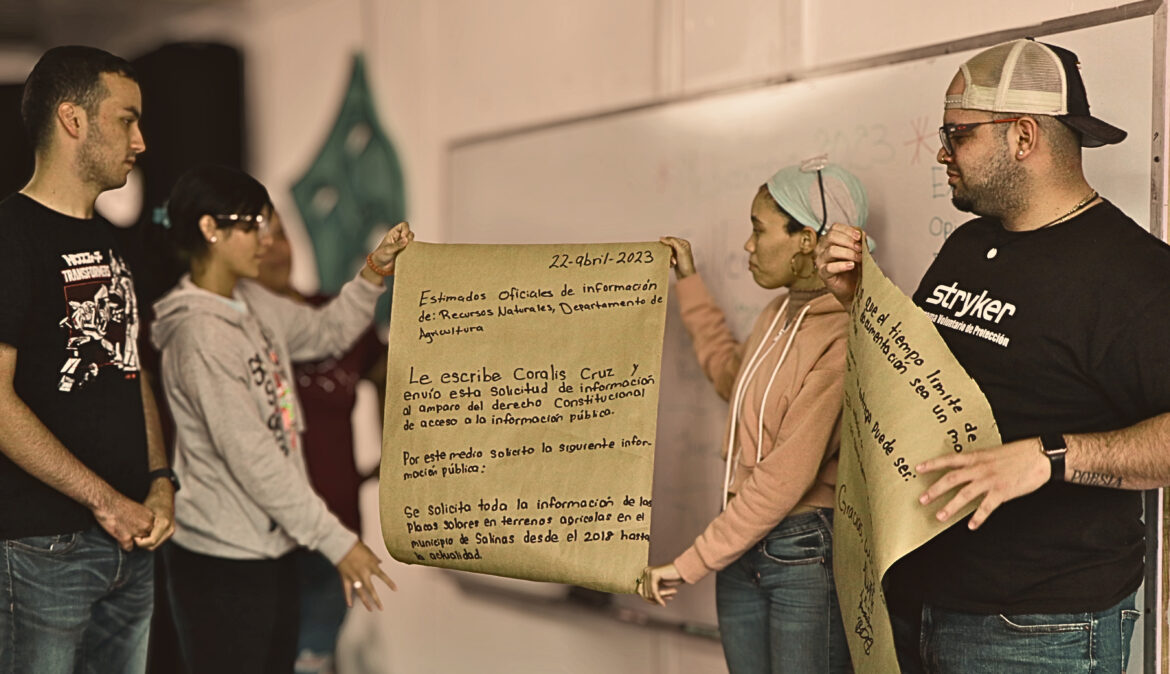 22-abril-2023
Estimados Oficiales de información
de: Recursos Naturales, Departamento de
Agricultura
Le escribe Coralis Cruz y
envío esta solicitud de información
al amparo del derecho Constitucional
de acceso a la información pública.
Por este medio solicito la siguiente infor-
mación pública:
Se solicita toda la información de las
placas solares en terrenos agrícolas en el
municipio de Salinas desde el 2018 hasta
la actualidad.
que el tiempo límite de
sea un
puede ser.
Gracias
TRANSFORMERS
stryker
Voluntario de Protección
POESÍA
2023